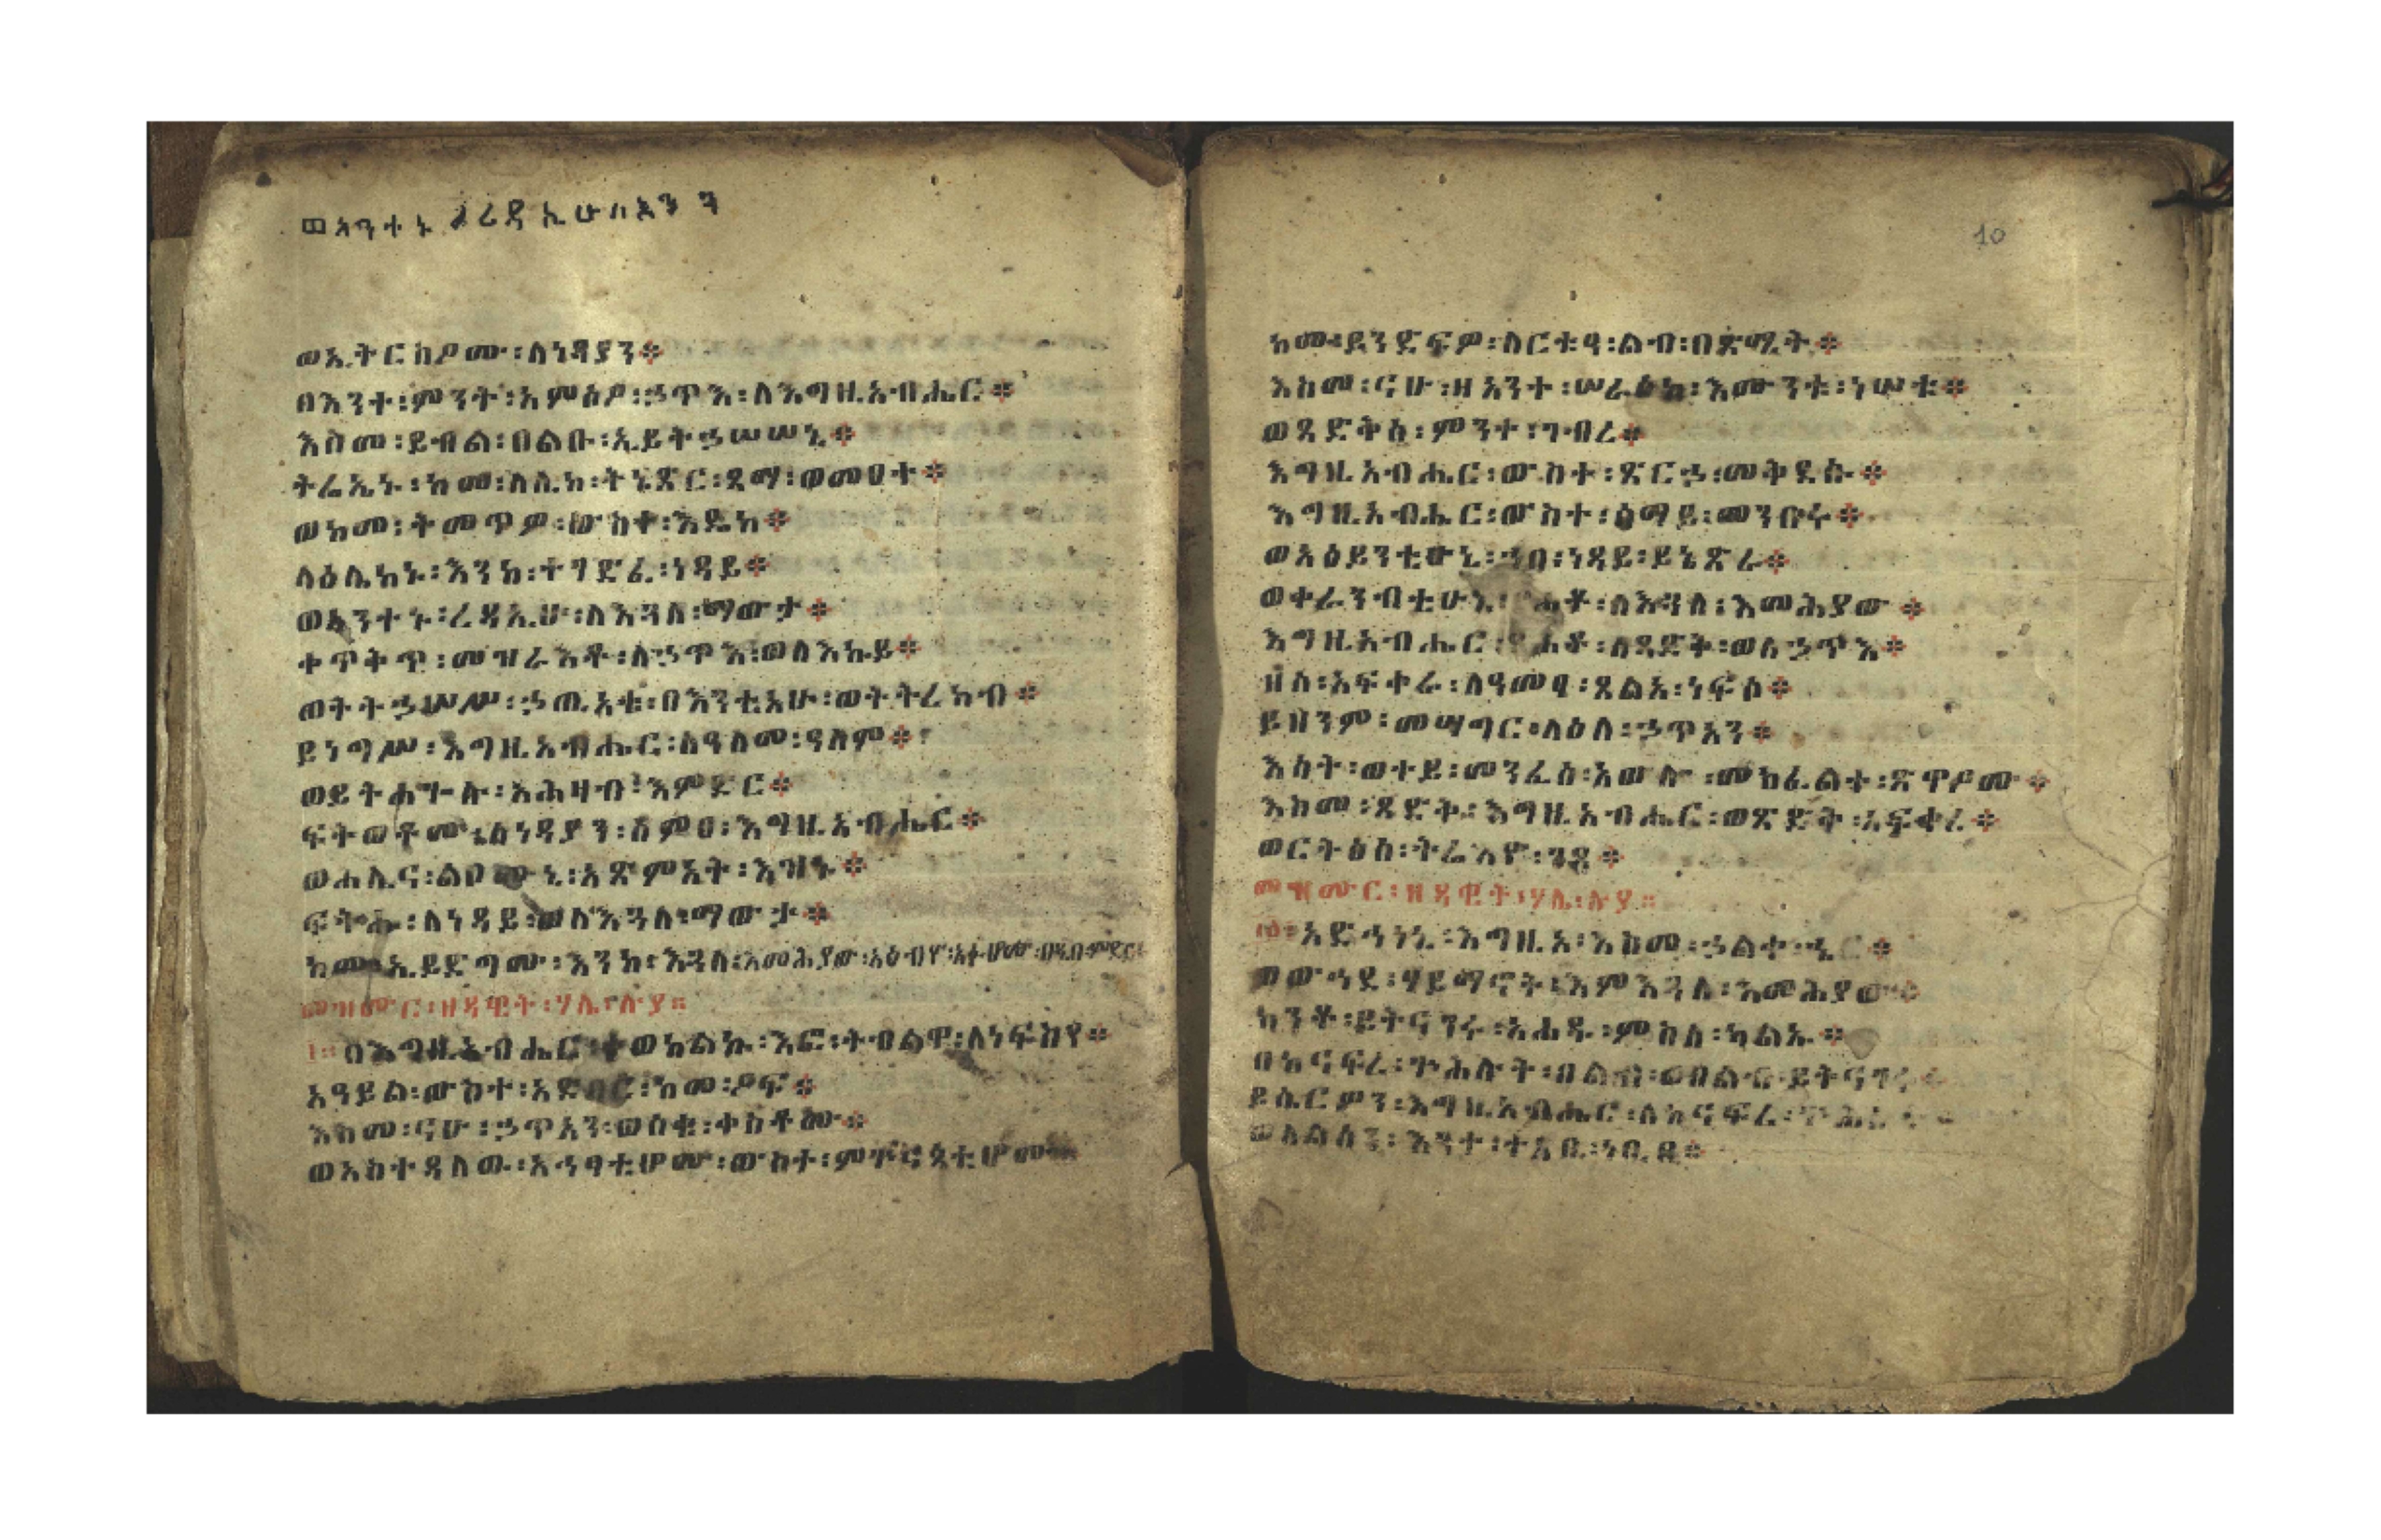 ወአንተኑ ረዳኢሁ ለእጓ
ወኢትርስዖሙ፡ለነዳያን፨
በእንተ፡ምንት፡አምዕዖ፡ኃጥእ፡ለእግዚአብሔር፨
እስመ፡ይብል፡በልቡ፡ኢይትኃሠሠኒ፨
ትሬኢኑ፡ከመ፡ለሊከ፡ትኔጽር፡ጻማ፡ወመዐተ፨
ወከመ፡ትመጥዎ፡ውስተ፡እዴከ፨
ላዕሌከኑ፡እንከ፡ተገድፈ፡ነዳይ፨
ወአንተኑ፡ረዳኢሁ፡ለእጓለ፡ማውታ፨
ቀጥቅጥ፡መዝራእቶ፡ለኃጥእ፡ወለእኩይ፨
ወትትኃሠሥ፡ኃጢአቱ፡በእንቲአሁ፡ወትትረከብ፨
ይነግሥ፡እግዚአብሔር፡ለዓለመ፡ዓለም፨
ወይትሐጐሉ፡አሕዛብ፡እምድር፨
ፍትወቶሙ፡ለነዳያን፡ሰምዐ፡እግዚአብሔር፨
ወሕሊና፡ልቦሙኒ፡አጽምአት፡እዝኑ፨
ፍትሕ፡ለነዳይ፡ወለእጓለ፡ማውታ፨
ከመ፡ኢይድግሙ፡እንከ፡እጓለ፡እመሕያው፡አዕብዮ፡አፉሆሙ፡በዲበ፡ምድር፡
መዝሙር፡ዘዳዊት፡ሃሌ፡ሉያ፡፡
፲፡፡በእግዚአብሔር፡ተወከልኩ፡እፎ፡ትብልዋ፡ለነፍስየ፨
አዓይል፡ውስተ፡አድባር፡ከመ፡ዖፍ፨
እስመ፡ናሁ፡ኃጥአን፡ወሰቁ፡ቀስቶሙ፨
ወአስተዳለዉ፡አሕፃቲሆሙ፡ውስተ፡ምጕንጳቲሆሙ፨
10
ከመ፡ይንድፍዎ፡ለርቱዓ፡ልብ፡በጽሚት፨
እስመ፡ናሁ፡ዘአንተ፡ሠራዕከ፡እሙንቱ፡ነሠቱ፨
ወጻድቅሰ፡ምንተ፡ገብረ፨
እግዚአብሔር፡ውስተ፡ጽርኃ፡መቅደሱ፨
እግዚአብሔር፡ውስተ፡ሰማይ፡መንበሩ፨
ወአዕይንቲሁኒ፡ኀበ፡ነዳይ፡ይኔጽራ፨
ወቀራንብቲሁኒ፡የሐቶ፡ለእጓለ፡እመሕያው፨
እግዚአብሔር፡የሐቶ፡ለጻድቅ፡ወለኃጥእ፨
ዘሰ፡አፍቀራ፡ለዓመፃ፡ጸልአ፡ነፍሶ፨
ይዘንም፡መሣግር፡ላዕለ፡ኃጥአን፨
እሳት፡ወተይ፡መንፈስ፡አውሎ፡መክፈልተ፡ጽዋዖሙ፨
እስመ፡ጻድቅ፡እግዚአብሔር፡ወጽድቅ፡አፍቀረ፨
ወርትዕሰ፡ትሬእዮ፡ገጹ፨
መዝሙር፡ዘዳዊት፡ሃሌ፡ሉያ፡፡
፲፩፡፡አድኅነኒ፡እግዚአ፡እስመ፡ኃልቀ፡ኄር፨
ወውኅደ፡ሃይማኖት፡እምእጓለ፡እመሕያው፨
ከንቶ፡ይትናገሩ፡አሐዱ፡ምስለ፡ካልኡ፨
በከናፍረ፡ጕሕሉት፡በልብ፡ወበልብ፡ይትናገሩ፨
ይሤርዎን፡እግዚአብሔር፡ለከናፍረ፡ጕሕሉት፨
ወለልሳን፡እንተ፡ተዐቢ፡ነቢበ፨